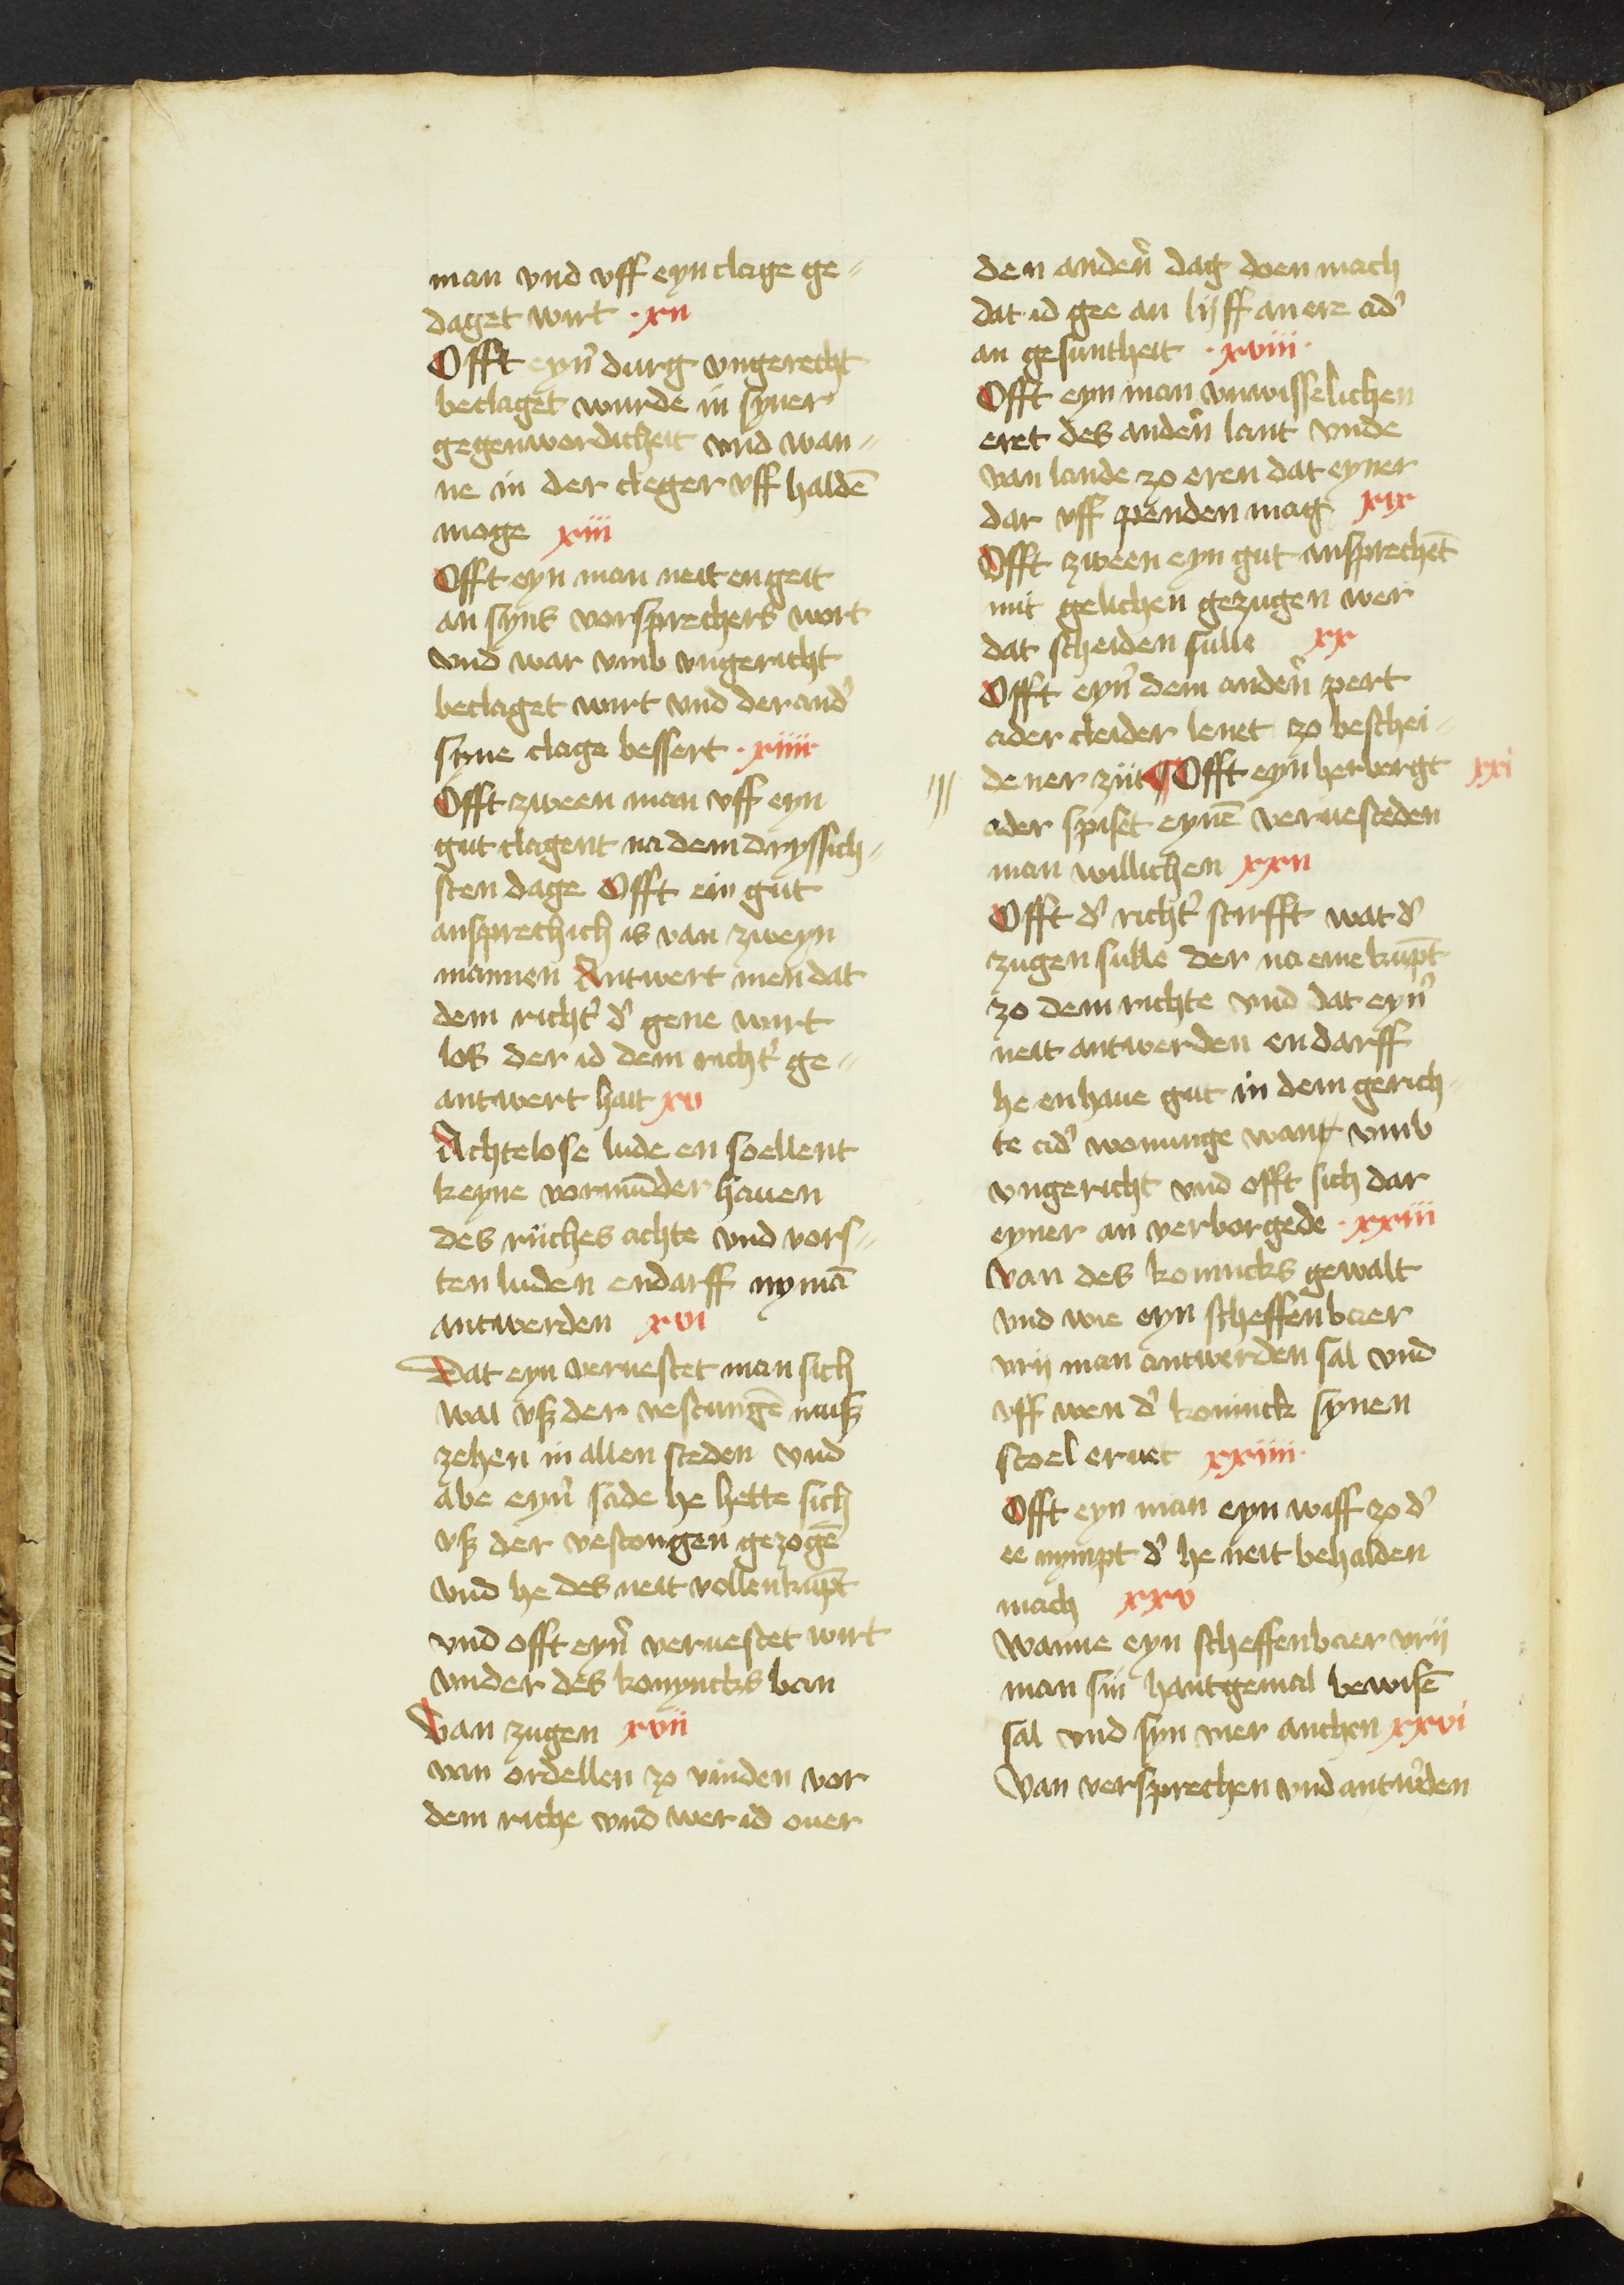 man vnd vff eyn clage ge⸗
daget wirt · xii
Offt eyn̉ durg vngerecht
beclaget wurde in syner
gegenwordicheit vnd wan⸗
ne in der cleger vff haldē
moge xiii
Offt eyn man neit en geit
an syns vorsprechers wort
vnd war vmb vngericht
beclaget wirt vnd der and̉
syne clage bessert · xiiii·
Offt zween man vff eyn
gut clagent na dem dryssich⸗
sten dage Offt ein gut
ansprechich is van zweyn
mannen Antwert men dat
dem richt̉ d̉ gene wirt
los der id dem richt̉ ge⸗
antwert hait xv
Achtelose lude en soellent
keyne vormūder hauen
des riiches achte vnd vors⸗
ten luden endarff nymā
antwerden xvi
Dat eyn veruestet man sich
wal vß der vestungē muß
zehen in allen steden vnd
abe eyn̉ sade he hette sich
vß der vestongen gezogē
vnd he des neit vollenkūpt
vnd offt eyn̉ veruestet wirt
vnder des konyncks ban
Van zugen xvii
van ordellen zo vinden vor
dem riche vnd wer id ouer
den anden̉ dag doen mach
dat id gee an lijff an ere ad̉
an gesuntheit · xviii·
Offt eyn man vnwisselichen
eret des anden̉ lant vnde
van lande zo eren dat eyner
dar vff penden mag xix
Offt zween eyn gut ansprechēt
mit gelichen gezugen wer
dat scheiden sulle xx
Offt eyn̉ dem anden̉ pert
ader cleider lenet zo beschei⸗
dener ziit ¶ Offt eyn̉ herbergt xxi
ader spiset eynē veruesteden
man willichen xxii
Offt d̉ richt̉ stirfft wat d̉
zugen sulle der na eme kūpt
zo dem richte vnd dat eyn̉
neit antwerden endarff
he en haue gut in dem gerich⸗
te ad̉ wonunge want vmb
vngericht vnd offt sich dar
eyner an verborgede · xxiii
Van des konincks gewalt
vnd wie eyn scheffenbaer
vrij man antwerden sal vnd
vff wen d̉ koninck synen
stoel eruet xxiiii·
Offt eyn man eyn wiff zo d̉
ee nympt d̉ he neit behalden
mach xxv
Wanne eyn scheffenbaer vrij
man sin hantgemal bewisē
sal vnd syn vier anchen xxvi
Van versprechen vnd antw̉den